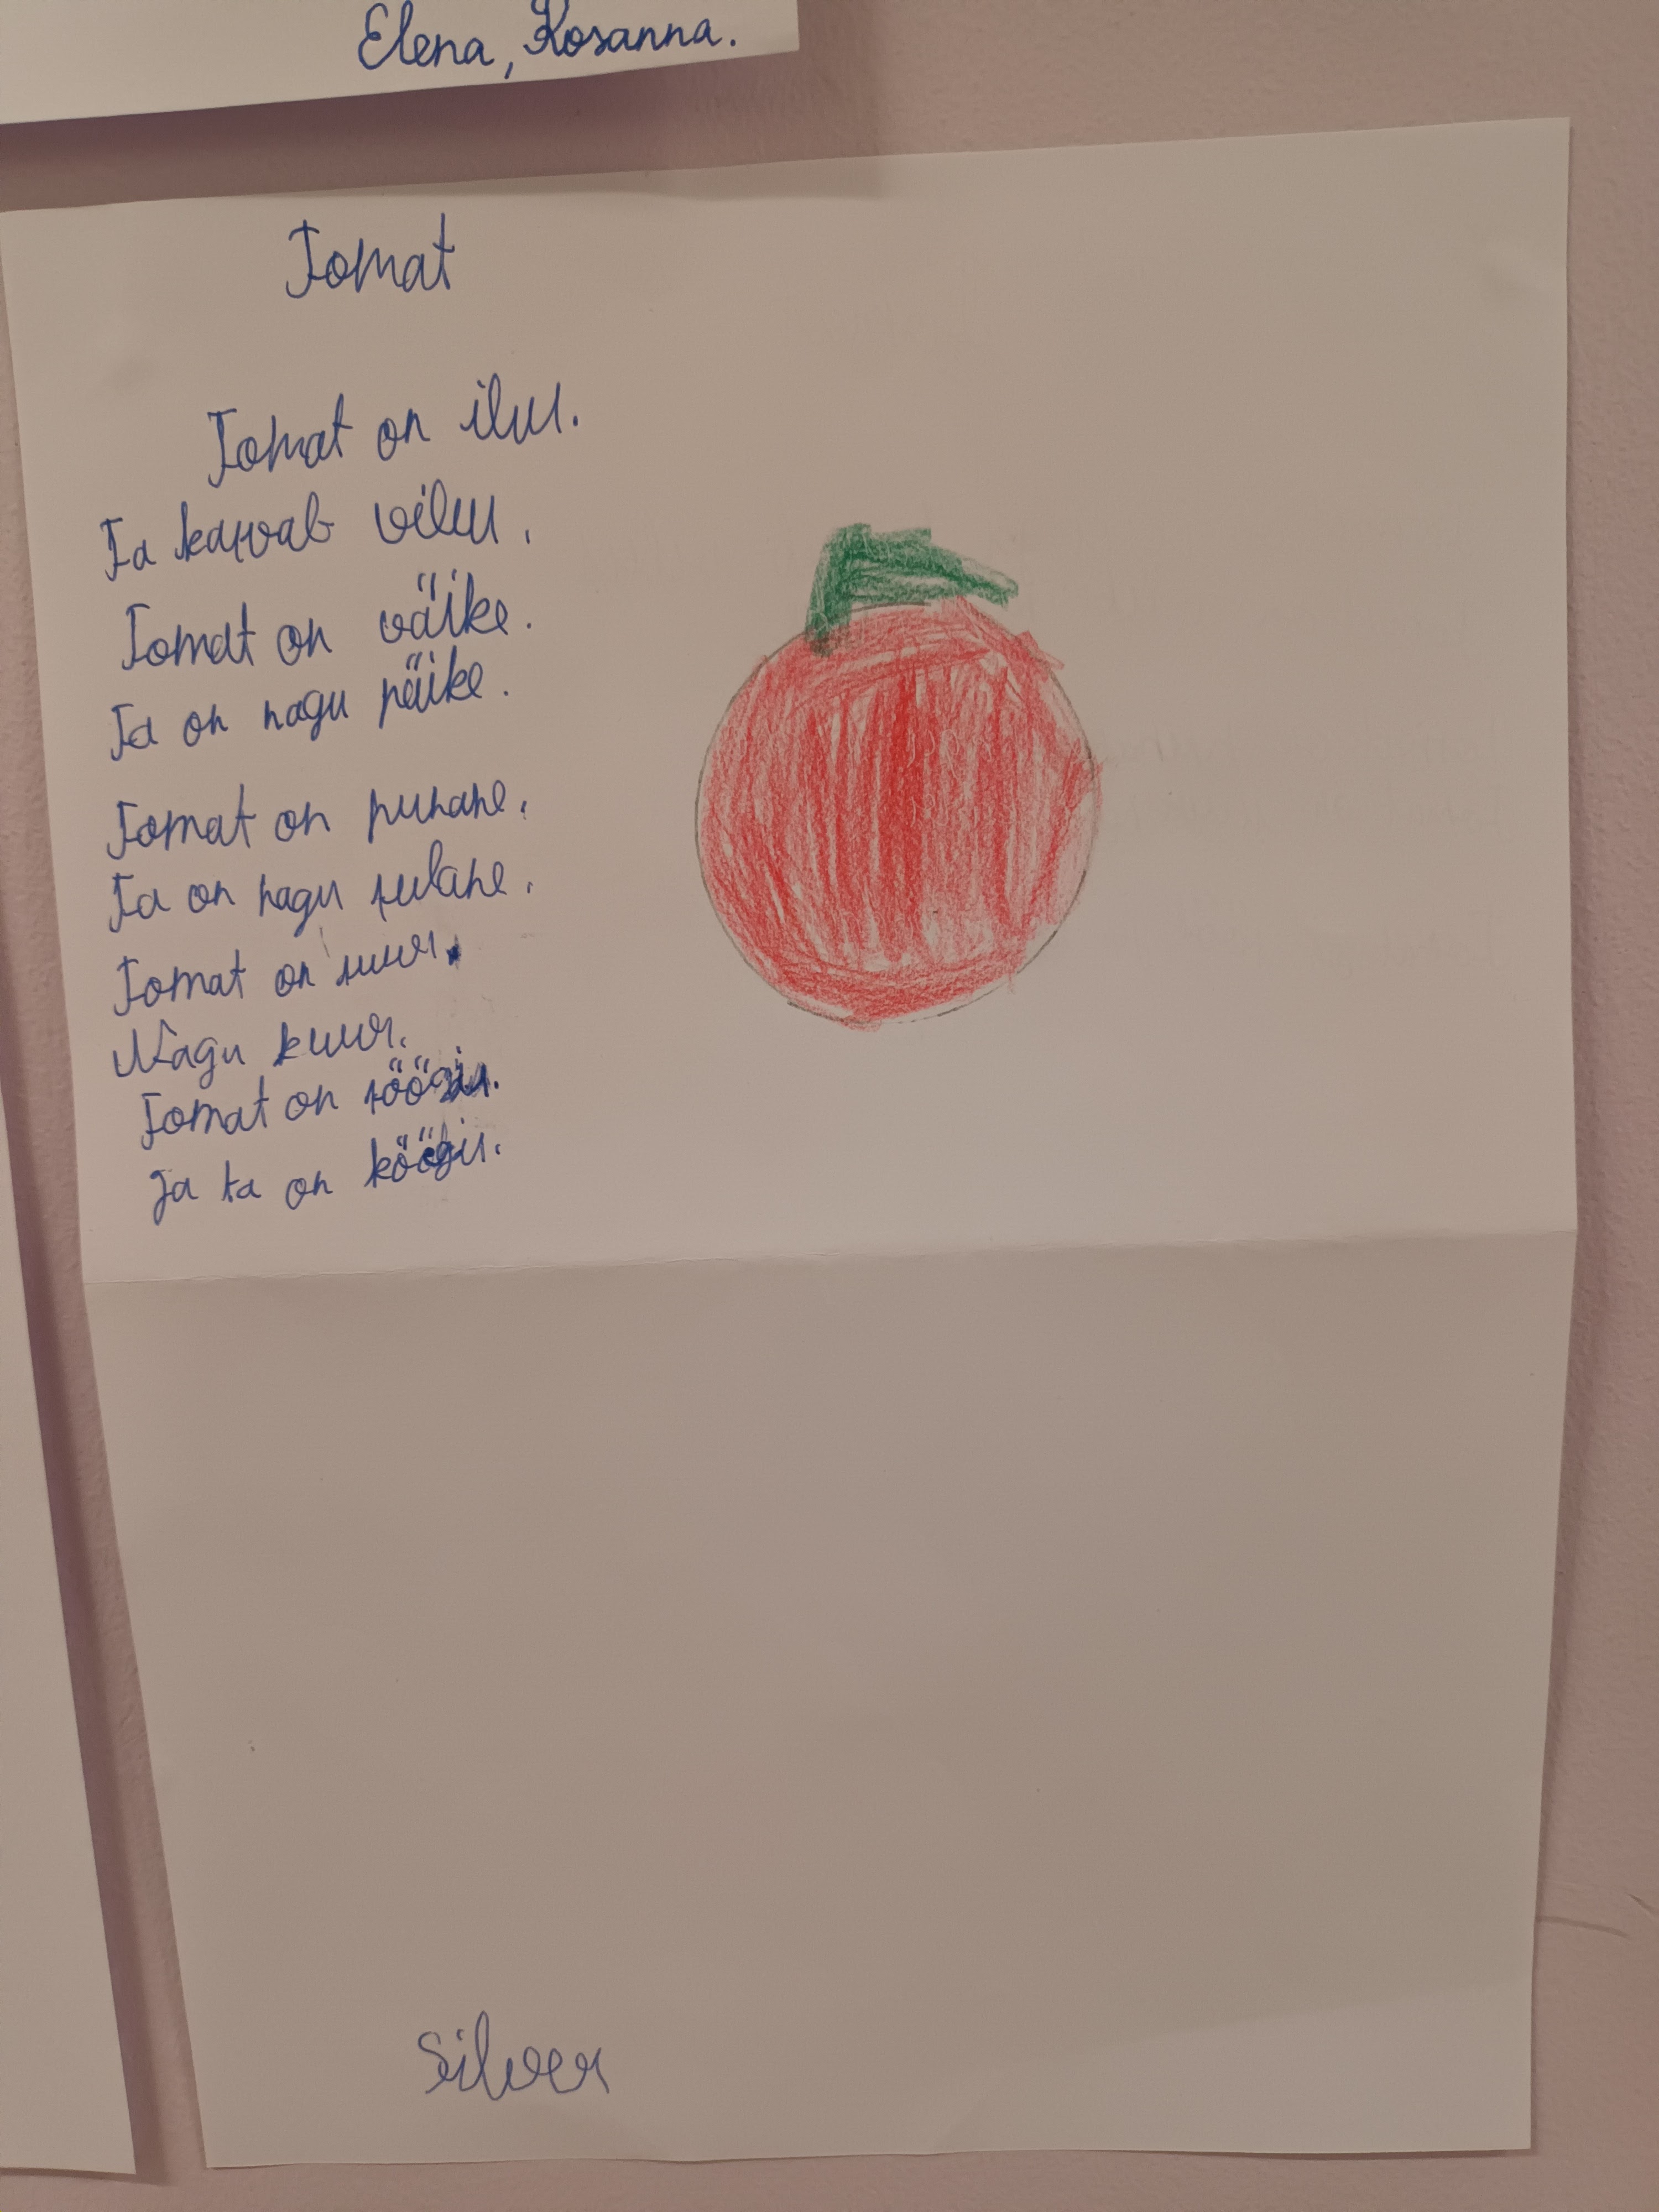 Elena, Rosanna.
Tomat
Tomat on ilu.
Ta kasvab vilu.
Tomat on väike.
Ta on nagu päike.
Tomat on punane.
Ta on nagu sulane.
Tomat on suur.
Nagu kuur.
Tomat on söögis.
Ja ta on köögis.
Silver